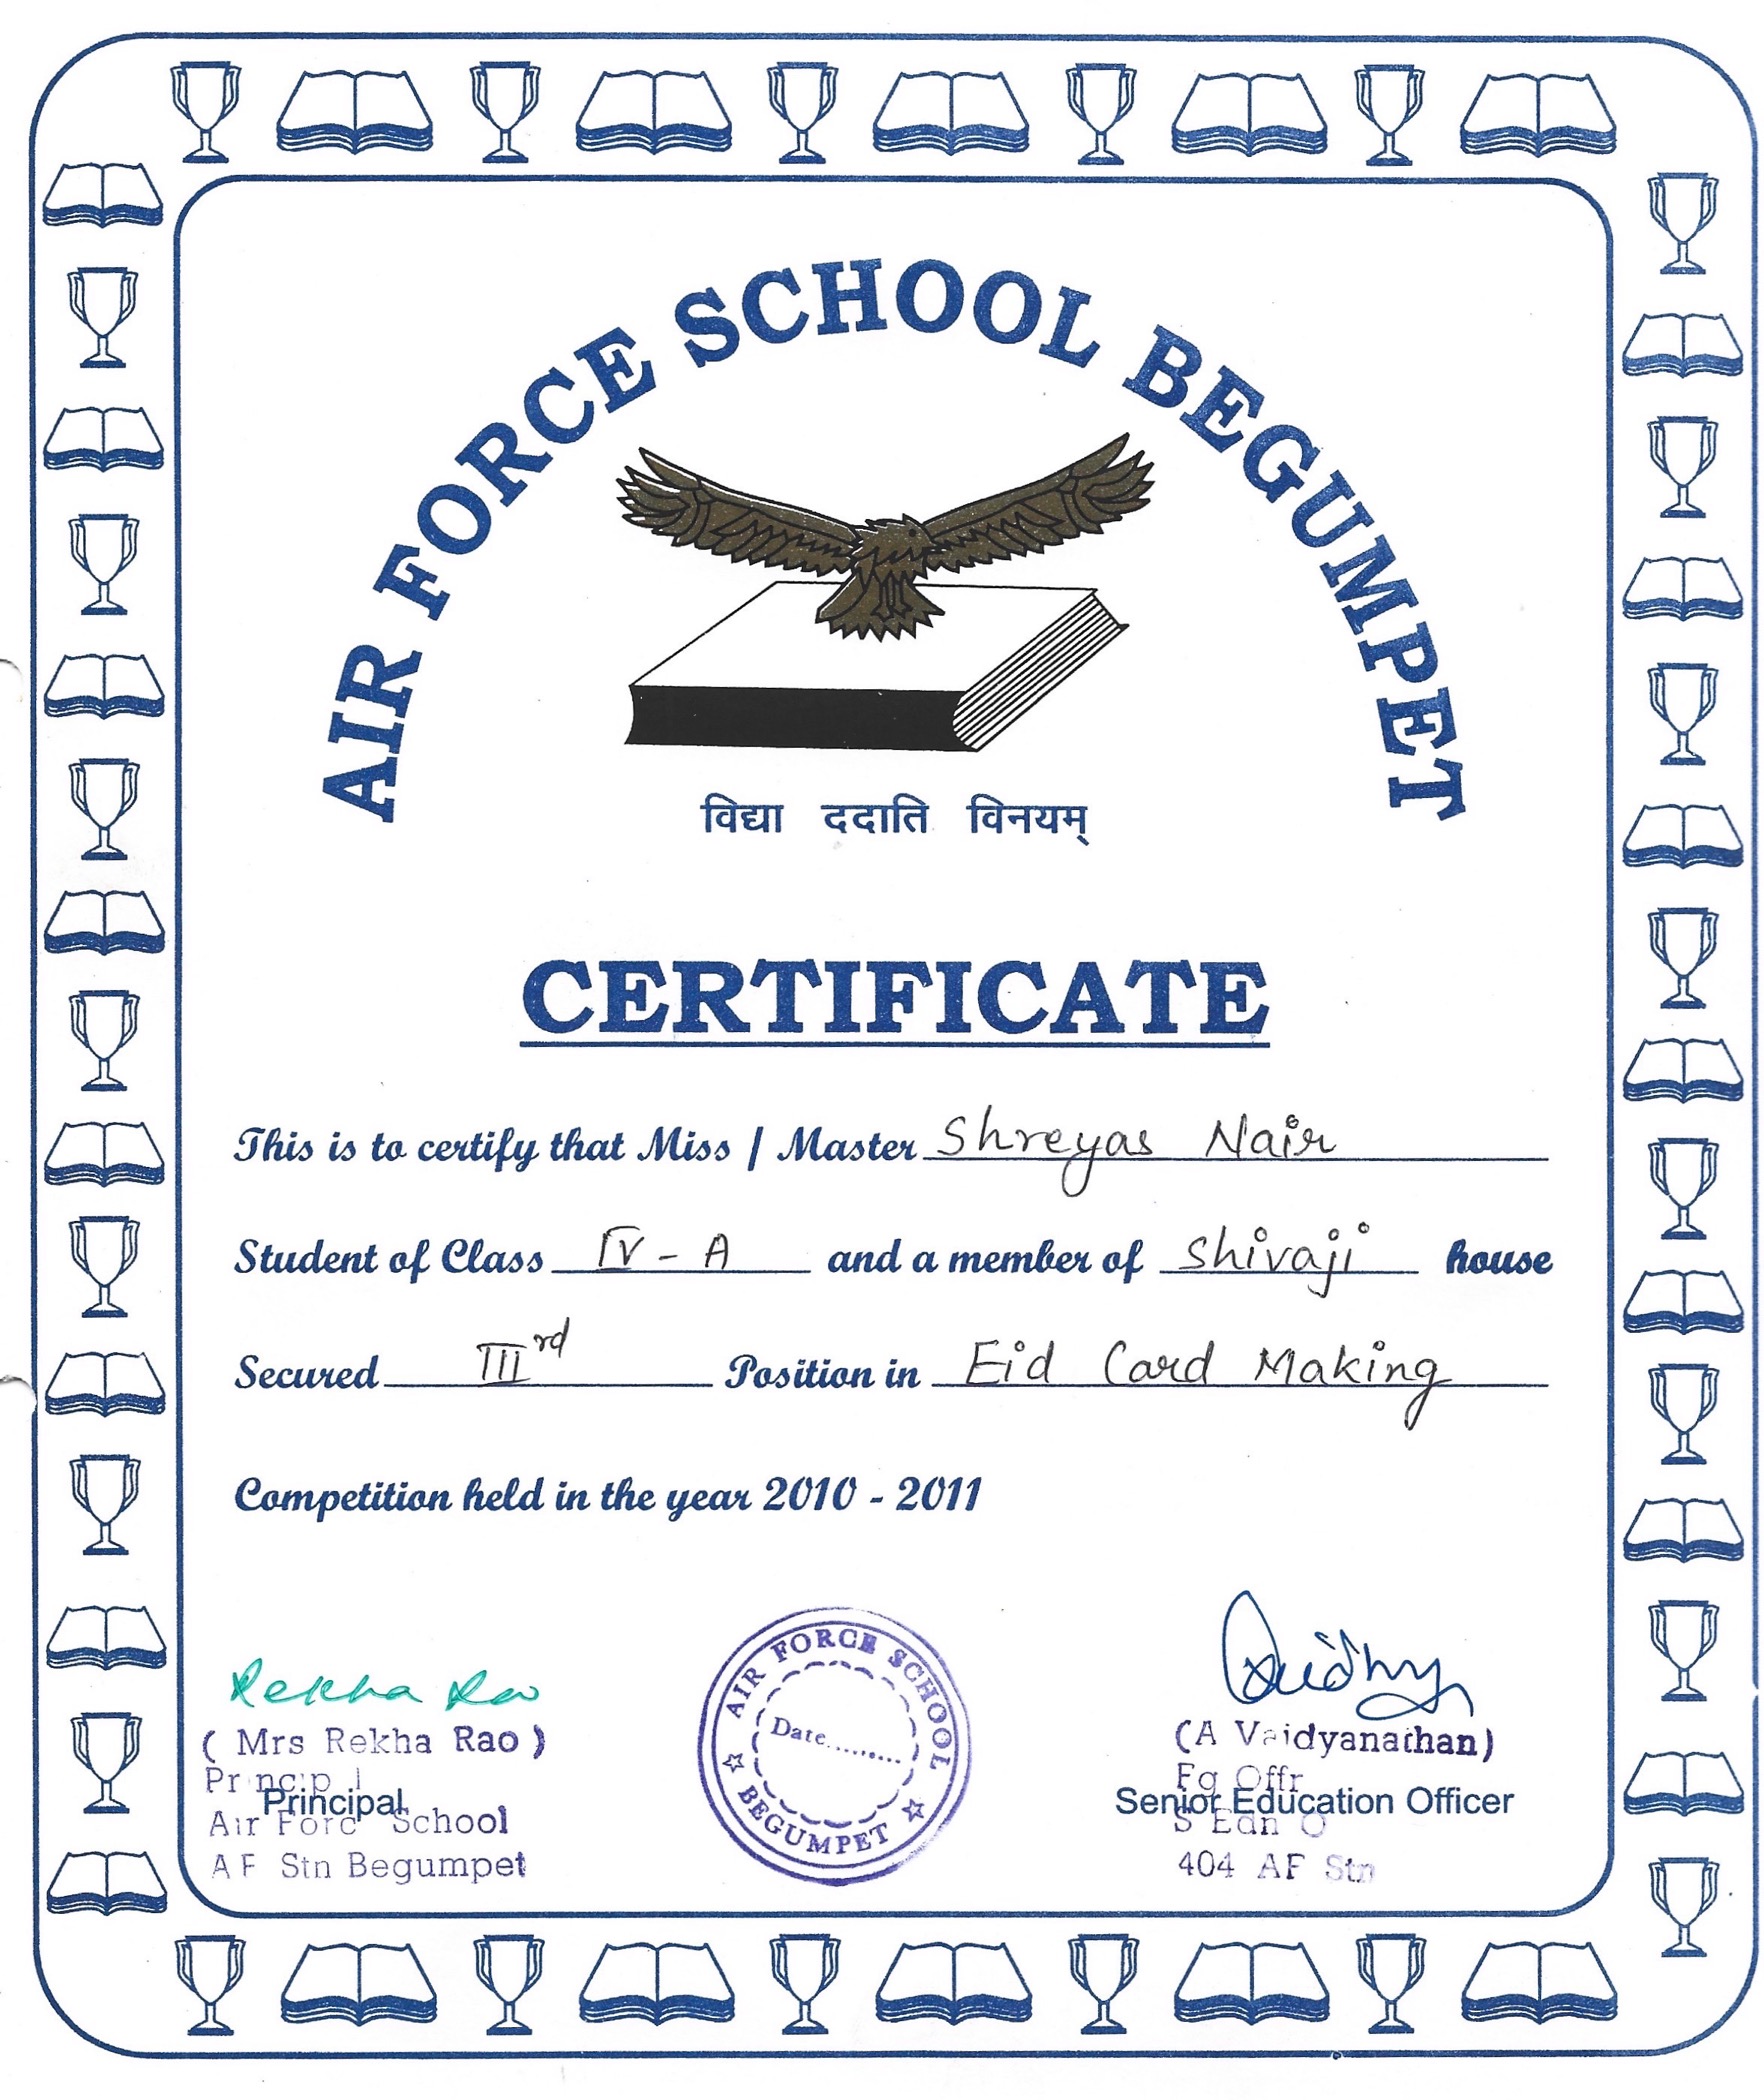 AIR FORCE SCHOOL BEGUMPET
विद्या ददाति विनयम्
CERTIFICATE
This is to certify that Miss / Master Shreyas Nair
Student of Class IV - A and a member of Shivaji house
Secured III rd Position in Eid Card Making
Competition held in the year 2010 - 2011
Rekha Rao
( Mrs Rekha Rao )
Principal
Principal
Air Forc School
A F Stn Begumpet
AIR FORCE SCHOOL
Date.........
BEGUMPET
(A Vaidyanathan)
Fg Offr
Senior Education Officer
S Edn O
404 AF Stn